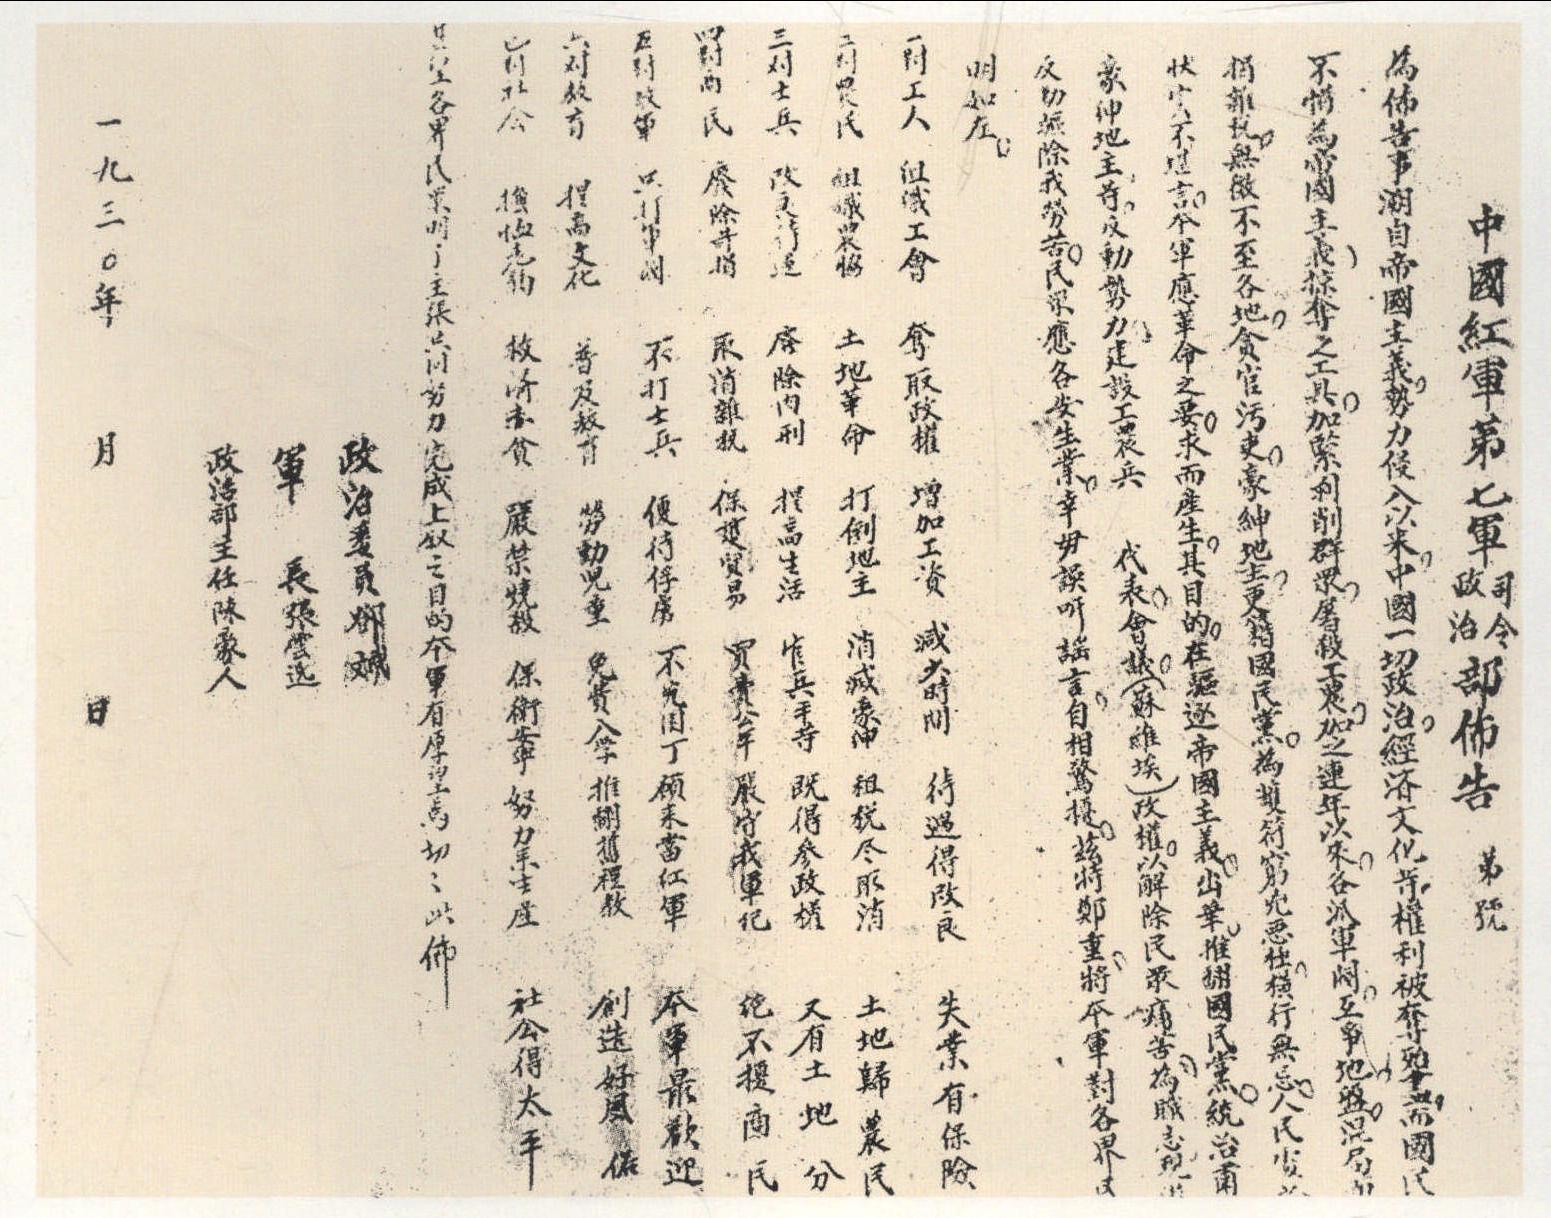 中國紅軍第七軍司令政治部佈告 第 號
為佈告事溯自帝國主義勢力侵入以来中國一切政治經济文化等權利被奪殆盡而國民
不惜為帝國主義掠奪之工具加緊剥削群眾屠殺工農加之連年以来各派軍閥互爭地盤混局
捐雜稅無微不至各地貪官污吏豪紳地主更藉國民黨為護符窮兇惡極橫行無忌人民
狀實不堪言本軍應革命之要求而產生其目的在驅逐帝國主義出華推翻國民黨統治肅
豪紳地主等反動勢力建設工農兵 代表會議(蘇維埃)政權以解除民眾痛苦為職志現
反切驅除我勞苦民眾應各安生業幸毋誤听謠言自相驚擾兹特鄭重將本軍對各界
明如左
一對工人 組織工會 奪取政權 增加工資 減少時間 待遇得改良 失業有保險
二對農民 組織農協 土地革命 打倒地主 消滅豪紳 租税尽取消 土地歸農民
三对士兵 改良待遇 廢除肉刑 提高生活 官兵平等 既得參政權 又有土地分
四對商民 廢除苛捐 取消雜税 保護貿易 買賣公平 嚴守我軍紀 絕不擾商民
五對敌軍 只打軍閥 不打士兵 優待俘虜 不咎困丁 願來當红軍 本軍最歡迎
六对教育 提高文化 普及教育 勞動児童 免費入学 推翻舊禮教 創造好風俗
七對社会 撫恤老弱 救济赤貧 嚴禁燒殺 保衛安寧 努力来生産 社公得太平
各界民眾明了主張共同努力完成上叙之目的本軍有厚望焉切切此佈
政治委員鄧斌
軍 長張雲逸
政治部主任陳豪人
一九三〇年 月 日